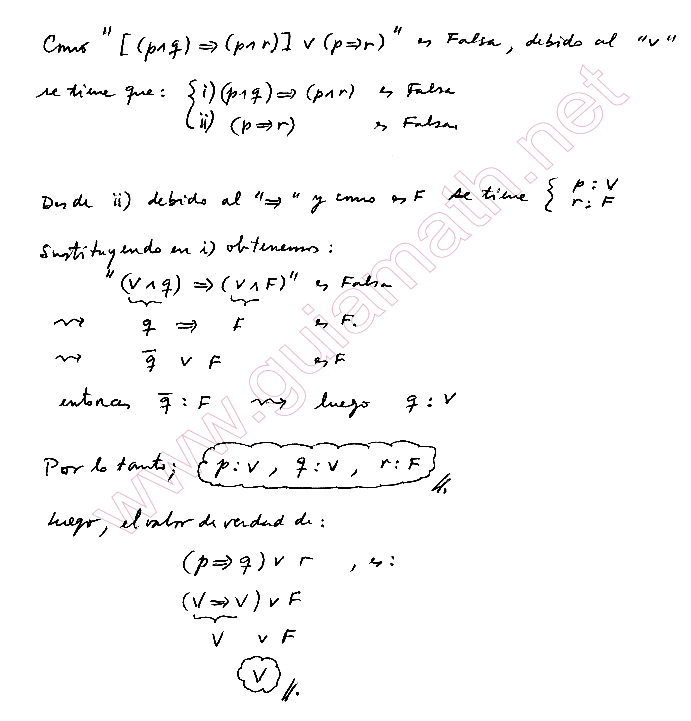 Como "[(p∧q) ⇒ (p∧r)] ∨ (p⇒r)" es Falsa, debido al "∨"
se tiene que: { i) (p∧q) ⇒ (p∧r) es Falsa
ii) (p⇒r) es Falsa.
Desde ii) debido al "⇒" y como es F se tiene { p : V
r : F
Sustituyendo en i) obtenemos:
"(V∧q) ⇒ (V∧F)" es Falsa
⇝ q ⇒ F es F.
⇝ q̅ ∨ F es F
entonces q̅ : F ⇝ luego q : V
Por lo tanto; p : V , q : V , r : F //.
Luego, el valor de verdad de:
(p⇒q) ∨ r , es:
(V⇒V) ∨ F
V ∨ F
V //.
www.guiamath.net